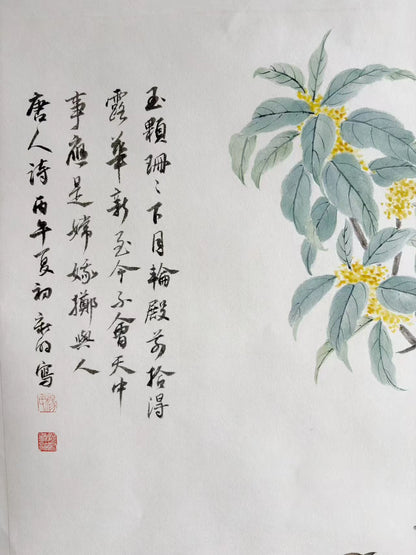 玉顆珊〻下月輪殿前拾得
露華新至今不會天中
事應是嫦娥擲與人
唐人詩丙午夏初寫